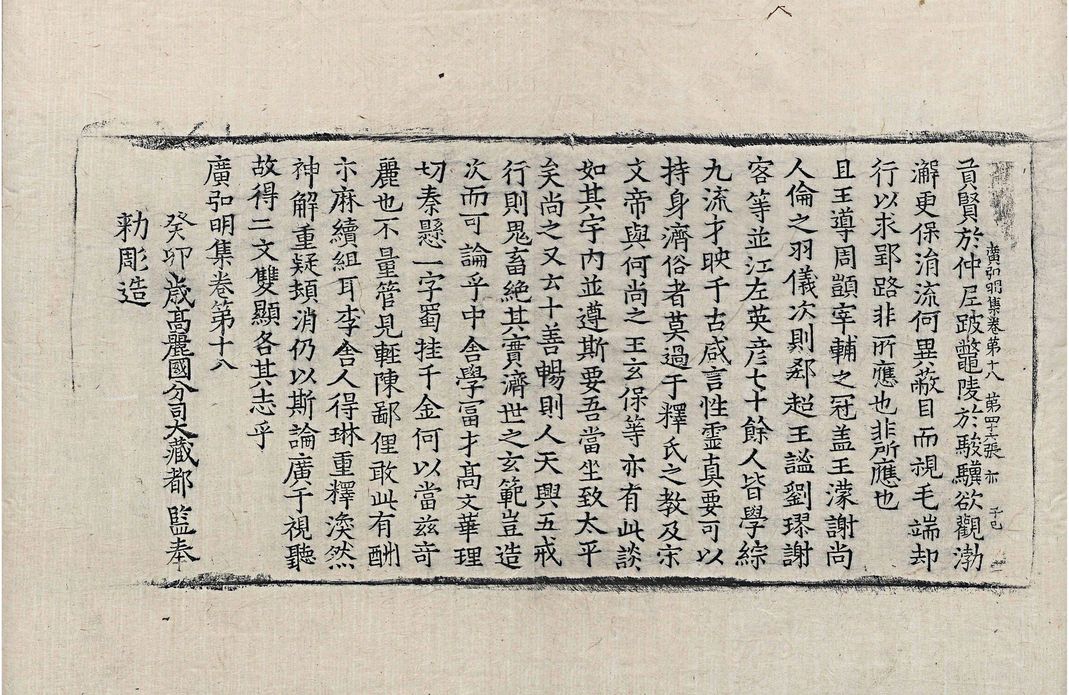 廣弘明集卷第十八 第四十六張 亦
貢賢於仲尼跛鼈陵於駿驥欲觀渤
澥更保涓流何異蔽目而視毛端却
行以求郢路非所應也非所應也
且王導周顗宰輔之冠盖王濛謝尚
人倫之羽儀次則郄超王謐劉璆謝
客等並江左英彦七十餘人皆學綜
九流才映千古咸言性靈真要可以
持身濟俗者莫過于釋氏之教及宋
文帝與何尚之王玄保等亦有此談
如其宇内並遵斯要吾當坐致太平
矣尚之又云十善暢則人天興五戒
行則鬼畜絶其實濟世之玄範豈造
次而可論乎中舎學冨才髙文華理
切秦懸一字蜀挂千金何以當兹奇
麗也不量管見輕陳鄙俚敢此有酬
示麻續組耳李舎人得琳重釋渙然
神解重疑頓消仍以斯論廣于視聽
故得二文雙顯各其志乎
廣弘明集卷第十八
癸卯歳髙麗國分司大藏都監奉
勅彫造